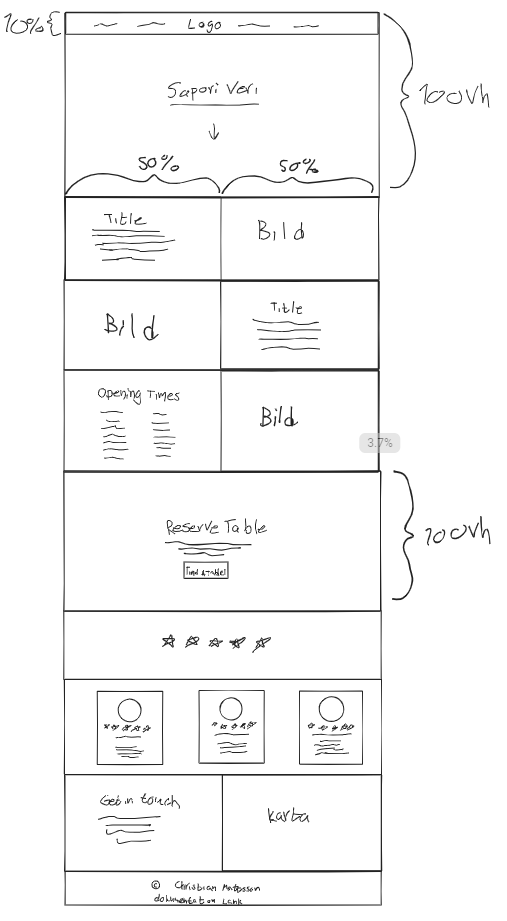 10%
Logo
100vh
Sapori Veri
50%
50%
Title
Bild
Bild
Title
Opening Times
Bild
3.7%
Reserve Table
Find a table!
100vh
Get in touch
karta
© Christian Mattsson
dokumentation Länk